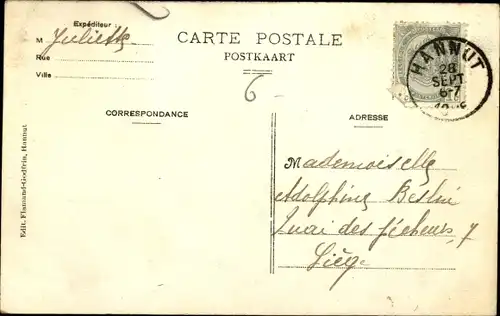 Expéditeur :
M Juliette
Rue
Ville
CARTE POSTALE
POSTKAART
6
HANNUT
28
SEPT
6-7
CORRESPONDANCE
ADRESSE
Mademoiselle
Adolphine Beslin
Quai des Pêcheurs, 7
Liège
Edit. Flamand-Godfrin, Hannut